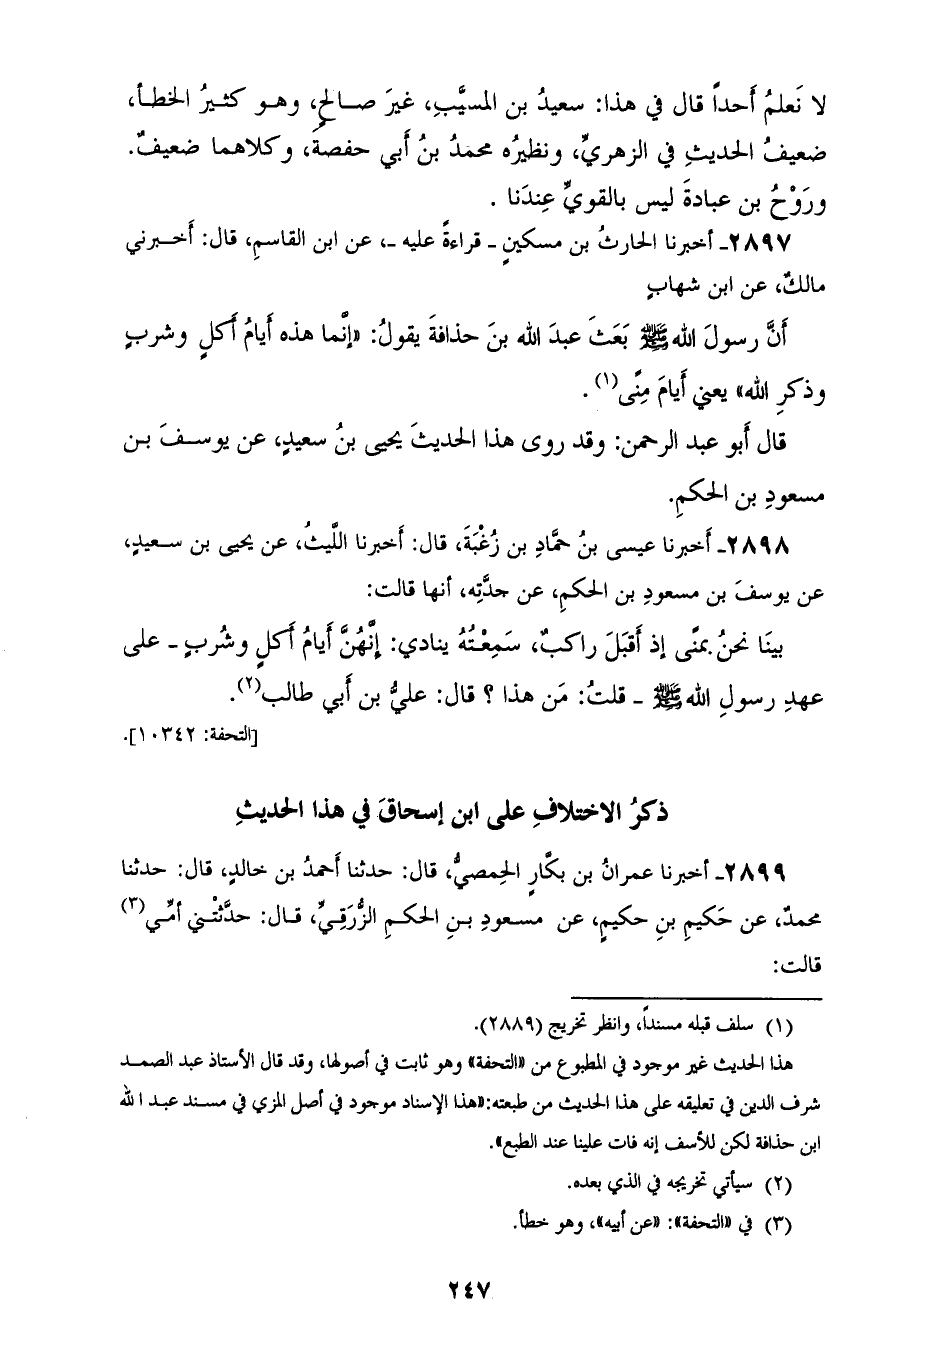 لا نَعلمُ أَحداً قال في هذا: سعيدُ بن المسيَّبِ، غيرَ صالحٍ، وهو كثيرُ الخطأ،
ضعيفُ الحديثِ في الزهريِّ، ونظيرُه محمدُ بنُ أَبي حفصةَ، وكلاهما ضعيفٌ.
ورَوْحُ بن عبادةَ ليس بالقويِّ عِندَنا .
٢٨٩٧ـ أخبرنا الحارثُ بن مسكينٍ ـ قراءةً عليه ـ، عن ابن القاسمِ، قال: أَخبرني
مالكٌ، عن ابن شهابٍ
أَنَّ رسولَ الله ﷺ بَعَثَ عبدَ الله بنَ حذافةَ يقولُ: «إنَّما هذه أَيامُ أَكلٍ وشربٍ
وذكرِ الله» يعني أَيامَ مِنًى(١) .
قال أَبو عبد الرحمن: وقد روى هذا الحديثَ يحيى بنُ سعيدٍ، عن يوسفَ بن
مسعودِ بن الحكمِ.
٢٨٩٨ـ أَخبرنا عيسى بنُ حمَّادِ بن زُغْبَةَ، قال: أَخبرنا اللَّيثُ، عن يحيى بن سعيدٍ،
عن يوسفَ بن مسعودِ بن الحكمِ، عن جدَّتِه، أنها قالت:
بينَا نحنُ بمنًى إذ أَقبَلَ راكبٌ، سَمِعْتُهُ ينادي: إنَّهُنَّ أَيامُ أَكلٍ وشُربٍ ـ على
عهدِ رسولِ الله ﷺ ـ قلتُ: مَن هذا ؟ قال: عليُّ بن أَبي طالب(٢).
[التحفة: ١٠٣٤٢].
ذكرُ الاختلافِ على ابن إسحاقَ في هذا الحديثِ
٢٨٩٩ـ أخبرنا عمرانُ بن بكَّارٍ الحِمصيُّ، قال: حدثنا أَحمدُ بن خالدٍ، قال: حدثنا
محمدٌ، عن حَكيمِ بنِ حكيمٍ، عن مسعودِ بنِ الحكمِ الزُّرَقِيِّ، قال: حدَّثَتْني أُمِّي(٣)
قالت:
(١) سلف قبله مسنداً، وانظر تخريج (٢٨٨٩).
هذا الحديث غير موجود في المطبوع من «التحفة» وهو ثابت في أصولها، وقد قال الأستاذ عبد الصمد
شرف الدين في تعليقه على هذا الحديث من طبعته:«هذا الإسناد موجود في أصل المزي في مسند عبد الله
ابن حذافة لكن للأسف إنه فات علينا عند الطبع».
(٢) سيأتي تخريجه في الذي بعده.
(٣) في «التحفة»: «عن أبيه»، وهو خطأ.
٢٤٧